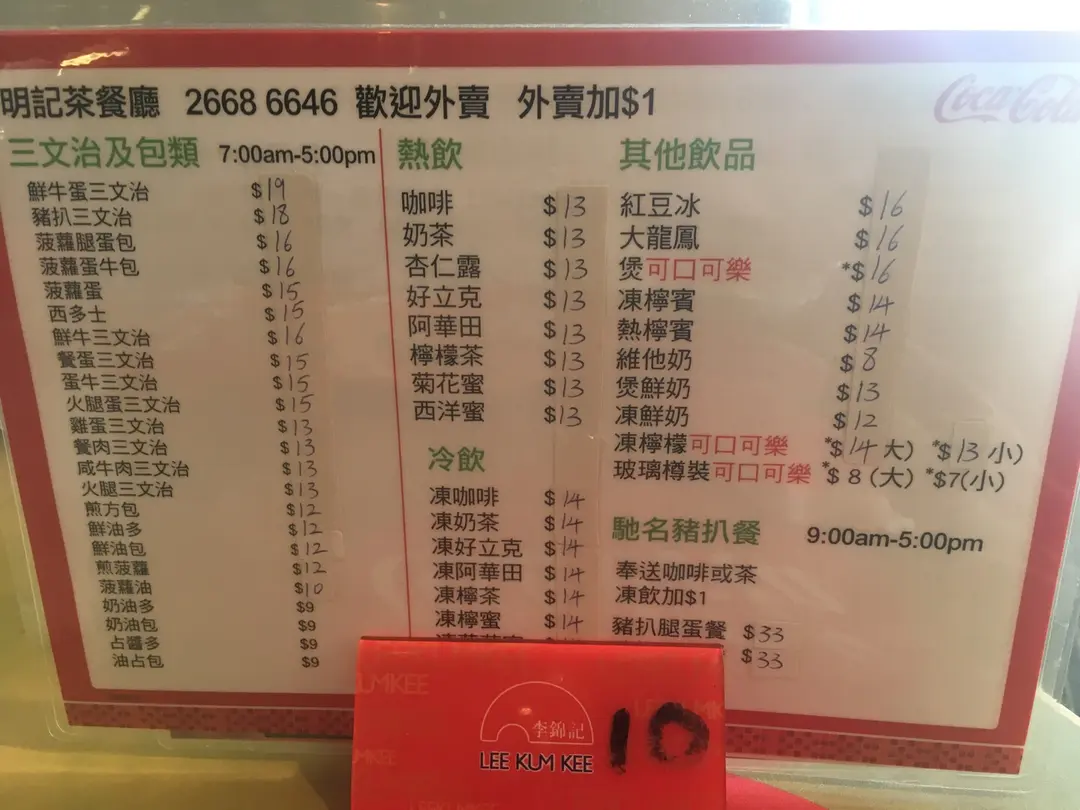 明記茶餐廳 2668 6646 歡迎外賣 外賣加$1
Coca-Cola
三文治及包類 7:00am-5:00pm
鮮牛蛋三文治 $19
豬扒三文治 $18
菠蘿腿蛋包 $16
菠蘿蛋牛包 $16
菠蘿蛋 $15
西多士 $15
鮮牛三文治 $16
餐蛋三文治 $15
蛋牛三文治 $15
火腿蛋三文治 $15
雞蛋三文治 $13
餐肉三文治 $13
咸牛肉三文治 $13
火腿三文治 $13
煎方包 $12
鮮油多 $12
鮮油包 $12
煎菠蘿 $12
菠蘿油 $10
奶油多 $9
奶油包 $9
占醬多 $9
油占包 $9
熱飲
咖啡 $13
奶茶 $13
杏仁露 $13
好立克 $13
阿華田 $13
檸檬茶 $13
菊花蜜 $13
西洋蜜 $13
冷飲
凍咖啡 $14
凍奶茶 $14
凍好立克 $14
凍阿華田 $14
凍檸茶 $14
凍檸蜜 $14
其他飲品
紅豆冰 $16
大龍鳳 $16
煲可口可樂 *$16
凍檸賓 $14
熱檸賓 $14
維他奶 $8
煲鮮奶 $13
凍鮮奶 $12
凍檸檬可口可樂 *$14大) *$13小)
玻璃樽裝可口可樂 *$8(大) *$7(小)
馳名豬扒餐 9:00am-5:00pm
奉送咖啡或茶
凍飲加$1
豬扒腿蛋餐 $33
$33
李錦記
LEE KUM KEE
10